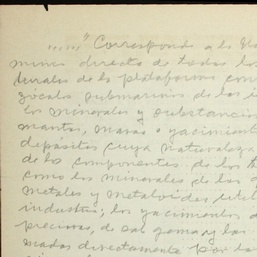 ......"Corresponde a la Na
minio directo de todos los
turales de la plataforma con
zócalos submarinos de las i
los minerales y substancia
mantos, masas o yacimient
depósitos cuya naturaleza
de los componentes de los t
como los minerales de los q
metales y metaloides util
industria; los yacimientos d
preciosas, de sal gema y las
madas directamente por la